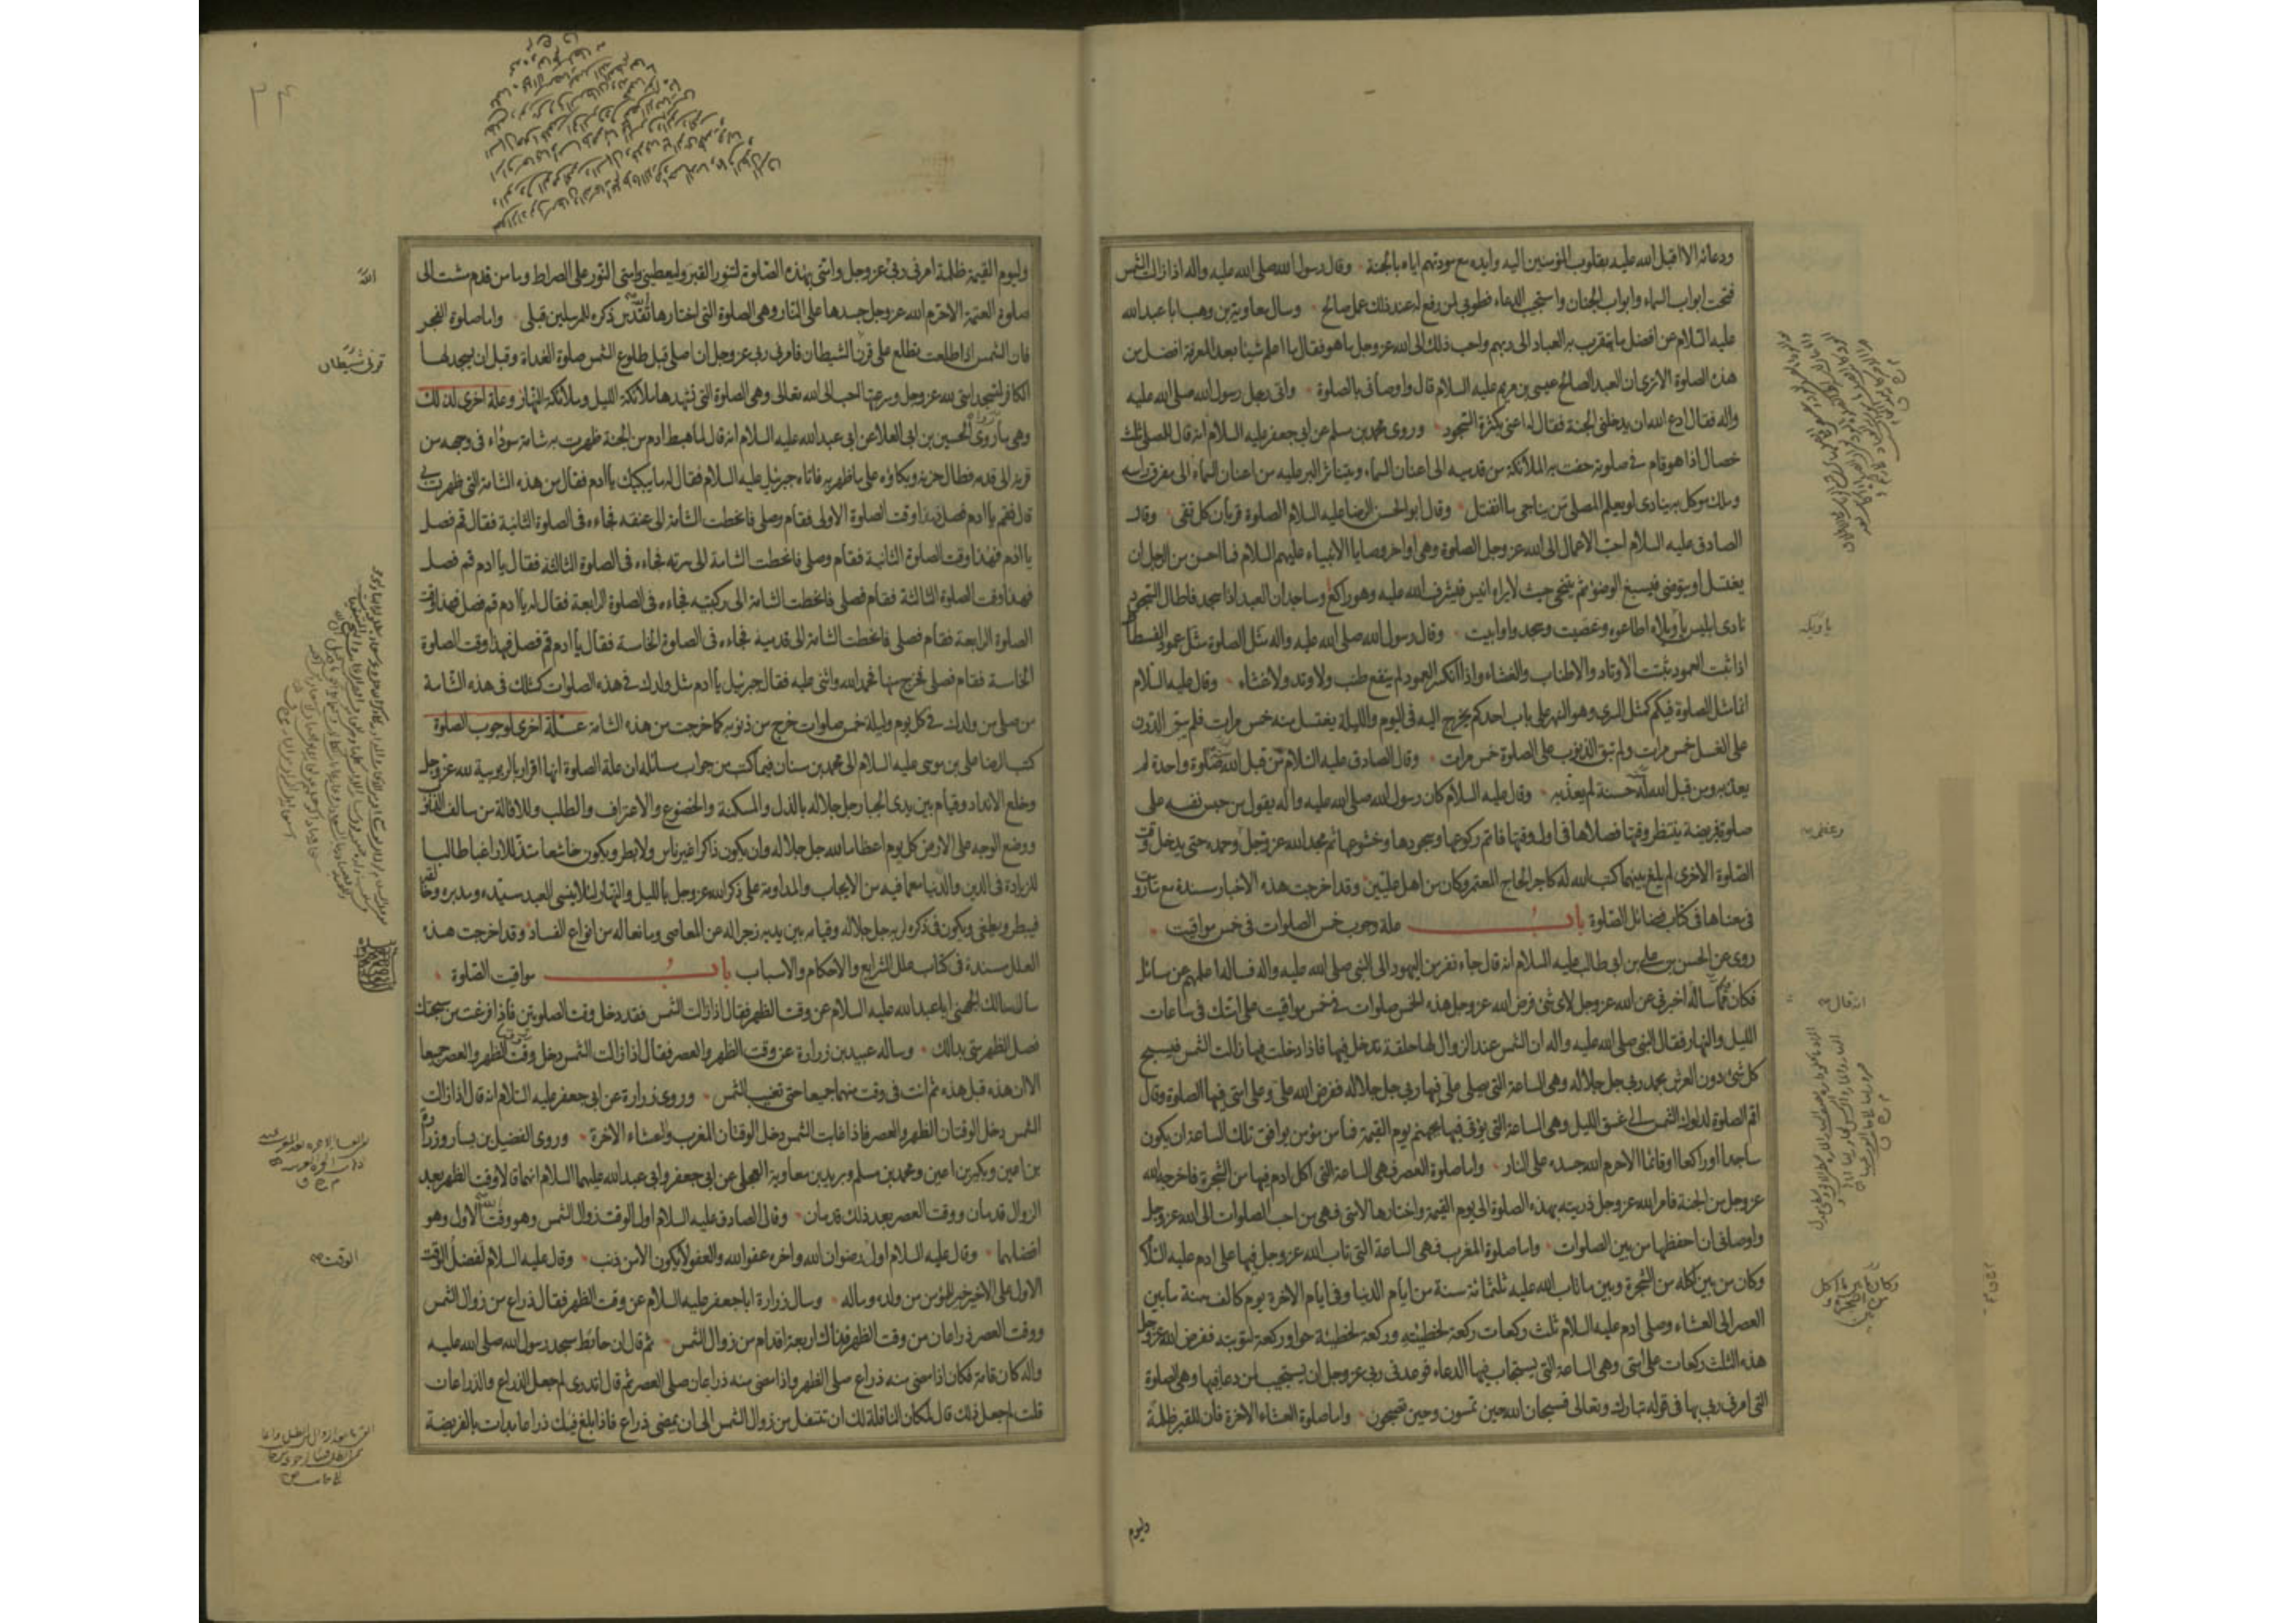 ودعائه الا اقبل الله عليه بقلوب المؤمنين اليه وايده مع مودتهم اياه بالجنة وقال رسول الله صلى الله عليه واله اذا زالت الشمس
فتحت ابواب السماء وابواب الجنان واستجيب الدعاء فطوبى لمن رفع له عند ذلك عمل صالح وسال معاوية بن وهب ابا عبد الله
عليه السلام عن افضل ما يتقرب به العباد الى ربهم واحب ذلك الى الله عز وجل ما هو فقال ما اعلم شيئا بعد المعرفة افضل من
هذه الصلوة الا ترى ان العبد الصالح عيسى بن مريم عليه السلام قال واوصانى بالصلوة واتى رجل رسول الله صلى الله عليه
واله فقال ادع الله ان يدخلنى الجنة فقال له اعنى بكثرة السجود وروى محمد بن مسلم عن ابى جعفر عليه السلام انه قال للمصلى ثلث
خصال اذا هو قام فى صلوته حفت به الملائكة من قدميه الى اعنان السماء ويتناثر البر عليه من اعنان السماء الى مفرق راسه
وملك موكل به ينادى لو يعلم المصلى من يناجى ما انفتل وقال ابو الحسن الرضا عليه السلام الصلوة قربان كل تقى وقال
الصادق عليه السلام احب الاعمال الى الله عز وجل الصلوة وهى اواخر وصايا الانبياء عليهم السلام فما احسن من الرجل ان
يغتسل او يتوضى فيسبغ الوضوء ثم يتنحى حيث لا يراه انيس فيشرف الله عليه وهو راكع وساجد ان العبد اذا سجد فاطال السجود
نادى ابليس يا ويلاه اطاعوه وعصيت وسجدوا وابيت وقال رسول الله صلى الله عليه واله مثل الصلوة مثل عمود الفسطاط
اذا ثبت العمود ثبتت الاوتاد والاطناب والغشاء واذا انكسر العمود لم ينفع طنب ولا وتد ولا غشاء وقال عليه السلام
انما مثل الصلوة فيكم كمثل السرى وهو النهر على باب احدكم يخرج اليه فى اليوم والليلة يغتسل منه خمس مرات فلم يبق الدرن
على الغسل خمس مرات ولم تبق الذنوب على الصلوة خمس مرات وقال الصادق عليه السلام من قبل الله منه صلوة واحدة لم
يعذبه ومن قبل الله له حسنة لم يعذبه وقال عليه السلام كان رسول الله صلى الله عليه واله يقول من حبس نفسه على
صلوة فريضة ينتظر وقتها فصلاها فى اول وقتها فاتم ركوعها وسجودها وخشوعها ثم مجد الله عز وجل وحمده حتى يدخل وقت
الصلوة الاخرى لم يلغ بينهما كتب الله له كاجر الحاج المعتمر وكان من اهل عليين وقد اخرجت هذه الاخبار مسندة مع ما رويت
فى معناها فى كتاب فضائل الصلوة باب علة وجوب خمس الصلوات فى خمس مواقيت
روى عن الحسن بن على بن ابى طالب عليه السلام انه قال جاء نفر من اليهود الى النبى صلى الله عليه واله فساله اعلمهم عن مسائل
فكان مما ساله اخبرنى عن الله عز وجل لاى شئ فرض الله عز وجل هذه الخمس صلوات فى خمس مواقيت على امتك فى ساعات
الليل والنهار فقال النبى صلى الله عليه واله ان الشمس عند الزوال لها حلقة تدخل فيها فاذا دخلت فيها زالت الشمس فيسبح
كل شئ دون العرش بحمد ربى جل جلاله وهى الساعة التى يصلى على فيها ربى جل جلاله ففرض الله على وعلى امتى فيها الصلوة وقال
اقم الصلوة لدلوك الشمس الى غسق الليل وهى الساعة التى يؤتى فيها بجهنم يوم القيمة فما من مؤمن يوافق تلك الساعة ان يكون
ساجدا او راكعا او قائما الا حرم الله جسده على النار واما صلوة العصر فهى الساعة التى اكل ادم فيها من الشجرة فاخرجه الله
عز وجل من الجنة فامر الله عز وجل ذريته بهذه الصلوة الى يوم القيمة واختارها لامتى فهى من احب الصلوات الى الله عز وجل
واوصانى ان احفظها من بين الصلوات واما صلوة المغرب فهى الساعة التى تاب الله عز وجل فيها على ادم عليه السلام
وكان من بين اكله من الشجرة وبين ما تاب الله عليه ثلثمائة سنة من ايام الدنيا وفى ايام الاخرة يوم كالف سنة ما بين
العصر الى العشاء وصلى ادم عليه السلام ثلث ركعات ركعة لخطيئته وركعة لخطيئة حوا وركعة لتوبته ففرض الله عز وجل
هذه الثلث ركعات على امتى وهى الساعة التى يستجاب فيها الدعاء فوعدنى ربى عز وجل ان يستجيب لمن دعا فيها وهى الصلوة
التى امرنى ربى بها فى قوله تبارك وتعالى فسبحان الله حين تمسون وحين تصبحون واما صلوة العشاء الاخرة فان للقبر ظلمة
وليوم
يا ويله
انه قال
وكان ما بين ما اكل من الشجرة
٣٤
وليوم القيمة ظلمة امرنى ربى عز وجل وامتى بهذه الصلوة لتنور القبر وليعطينى وامتى النور على الصراط وما من قدم مشت الى
صلوة العتمة الا حرم الله عز وجل جسدها على النار وهى الصلوة التى اختارها تقدس ذكره للمرسلين قبلى واما صلوة الفجر
فان الشمس اذا طلعت تطلع على قرن الشيطان فامرنى ربى عز وجل ان اصلى قبل طلوع الشمس صلوة الغداة وقبل ان يسجد لها
الكافر لتسجد امتى لله عز وجل وسرعتها احب الى الله تعالى وهى الصلوة التى تشهدها ملائكة الليل وملائكة النهار وعلة اخرى لذلك
وهى ما روى الحسين بن ابى العلا عن ابى عبد الله عليه السلام انه قال لما هبط ادم من الجنة ظهرت به شامة سوداء فى وجهه من
قرنه الى قدمه فطال حزنه وبكاؤه على ما ظهر به فاتاه جبرئيل عليه السلام فقال له ما يبكيك يا ادم فقال من هذه الشامة التى ظهرت بى
قال فقم يا ادم فصل فهذا وقت الصلوة الاولى فقام وصلى فانحطت الشامة الى عنقه فجاءه فى الصلوة الثانية فقال قم فصل
يا ادم فهذا وقت الصلوة الثانية فقام وصلى فانحطت الشامة الى سرته فجاءه فى الصلوة الثالثة فقال يا ادم قم فصل
فهذا وقت الصلوة الثالثة فقام فصلى فانحطت الشامة الى ركبتيه فجاءه فى الصلوة الرابعة فقال له يا ادم قم فصل فهذا وقت
الصلوة الرابعة فقام فصلى فانحطت الشامة الى قدميه فجاءه فى الصلوة الخامسة فقال يا ادم قم فصل فهذا وقت الصلوة
الخامسة فقام فصلى فخرج منها فحمد الله واثنى عليه فقال جبرئيل يا ادم مثل ولدك فى هذه الصلوات كمثلك فى هذه الشامة
من صلى من ولدك فى كل يوم وليلة خمس صلوات خرج من ذنوبه كما خرجت من هذه الشامة علة اخرى لوجوب الصلوة
كتب الرضا على بن موسى عليه السلام الى محمد بن سنان فيما كتب من جواب مسائله ان علة الصلوة انها اقرار بالربوبية لله عز وجل
وخلع الانداد وقيام بين يدى الجبار جل جلاله بالذل والمسكنة والخضوع والاعتراف والطلب وللاقالة من سالف الذنوب
ووضع الوجه على الارض كل يوم اعظاما لله جل جلاله وان يكون ذاكرا غير ناس ولا بطر ويكون خاشعا متذللا راغبا طالبا
للزيادة فى الدين والدنيا مع ما فيه من الايجاب والمداومة على ذكر الله عز وجل بالليل والنهار لئلا ينسى العبد سيده ومدبره وخالقه
فيبطر ويطغى ويكون فى ذكره لربه جل جلاله وقيامه بين يديه زجرا له عن المعاصى ومانعا له من انواع الفساد وقد اخرجت هذه
العلل مسندة فى كتاب علل الشرايع والاحكام والاسباب باب مواقيت الصلوة
سال مالك الجهنى ابا عبد الله عليه السلام عن وقت الظهر فقال اذا زالت الشمس فقد دخل وقت الصلوتين فاذا فرغت من سبحتك
فصل الظهر متى بدا لك وساله عبيد بن زرارة عن وقت الظهر والعصر فقال اذا زالت الشمس دخل وقت الظهر والعصر جميعا
الا ان هذه قبل هذه ثم انت فى وقت منهما جميعا حتى تغيب الشمس وروى زرارة عن ابى جعفر عليه السلام انه قال اذا زالت
الشمس دخل الوقتان الظهر والعصر فاذا غابت الشمس دخل الوقتان المغرب والعشاء الاخرة وروى الفضيل بن يسار وزرارة
بن اعين وبكير بن اعين ومحمد بن مسلم وبريد بن معاوية العجلى عن ابى جعفر وابى عبد الله عليهما السلام انهما قالا وقت الظهر بعد
الزوال قدمان ووقت العصر بعد ذلك قدمان وقال الصادق عليه السلام اول الوقت زوال الشمس وهو وقت الله الاول وهو
افضلهما وقال عليه السلام اوله رضوان الله واخره عفو الله والعفو لا يكون الا من ذنب وقال عليه السلام لفضل الوقت
الاول على الاخير خير للمؤمن من ولده وماله وسال زرارة ابا جعفر عليه السلام عن وقت الظهر فقال ذراع من زوال الشمس
ووقت العصر ذراعان من وقت الظهر فذاك اربعة اقدام من زوال الشمس ثم قال ان حائط مسجد رسول الله صلى الله عليه
واله كان قامة فكان اذا مضى منه ذراع صلى الظهر واذا مضى منه ذراعان صلى العصر ثم قال اتدرى لم جعل الذراع والذراعان
قلت لم جعل ذلك قال لمكان النافلة لك ان تتنفل من زوال الشمس الى ان يمضى ذراع فاذا بلغ فيئك ذراعا بدات بالفريضة
الله
قرنى شيطان
الوقت